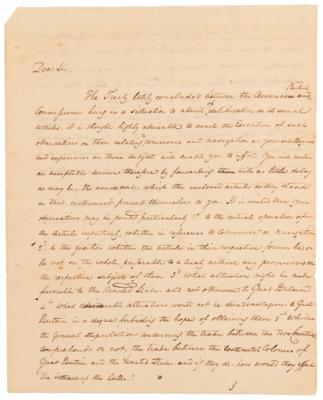 Dear Sir,
The Treaty lately concluded between the American and British
Commissioners being in a situation to admit of deliberation on its several
articles, it is thought highly adviseable to avail the Executive of such
observations on those relating to commerce and navigation as your intelligence
and experience on those subjects will enable you to afford. You will render
an acceptable service therefore by forwarding with as little delay
as may be, the views under which the inclosed articles as they stand
in that instrument present themselves to you. It is wished that your
observations may be pointed particularly 1st to the actual operation of
the Articles respectively, whether in reference to Commerce or Navigation
2d to the question whether the articles in their respective forms, be or
be not on the whole, preferable to a treaty without any provisions on
the respective subjects of them 3d What alterations might be made
favorable to the United States, and not otherwise to Great Britain
4th What alterations would not be disadvantageous to Great
Britain in a degree forbidding the hope of obtaining them 5 Whether
the general stipulations concerning the trade between the two Countries
comprehends or not, the trade between the Continental Colonies of
Great Britain and the United States, and if they do, how would they affect
the interests of the latter?